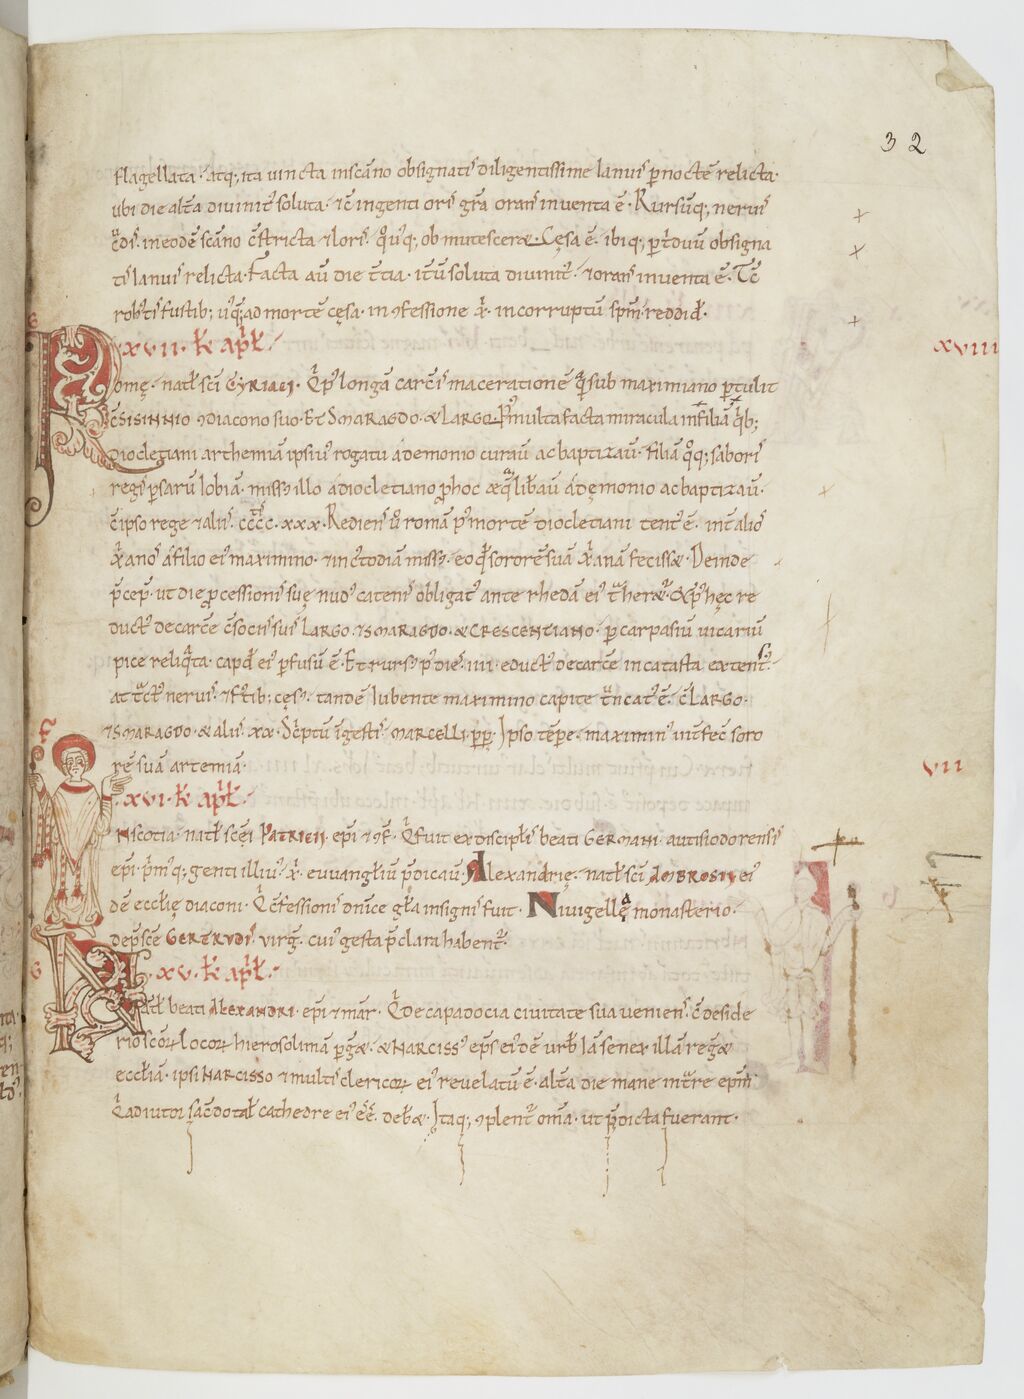 32
flagellata· atq; ita vincta inscāno obsignatis diligentissime ianuis ꝑnoctē relicta·
ubi die alt̄a divinit᷒ soluta· ⁊c̄ ingenti oris gr̄a orans inventa ē· Rursūq; neruis
ineodē scāno c̄stricta ⁊loris· ob mutescere· Cęsa ē· ibiq; ꝑt̄duū obsigna
tis Ianuis relicta· Facta aū die t̄tia· it̄ū soluta divinit᷒· ⁊orans inventa ē· Tc̄
robustis fustib; usq; ad mortē cęsa· in ꝯfessione incorruptū sp̄m reddid̄·
·XVII· kł aprł·
XVIII
Romę· natł sc̄i Cyriaci· Qͥ pꝰ longā carc̄is macerationē quā sub maximiano ꝑtulit
c̄ SISINNIO ꝯdiacono suo· Et SMARAGDO· & LARGO· Pꝰ multa facta miracula in filiā qͥb;
Diocletiani arthemiā ipsius rogatu ademonio curaū ac baptizaū· filiā qͦq; saboris
regis ꝑsarū Iobiā· missꝰ illo adiocletiano ꝓhoc ęq̄ libaū ádęmonio ac baptizaū·
c̄ ipso rege ⁊aliis· cccc·xxx· Rediens v̊ romā pꝰ mortē diocletiani tentꝰ ē· int̄ alios
xr̄anos áfilio eiꝰ maximino· ⁊incꝰtodiā missꝰ· eo qd̄ sororē suā xr̄anā fecisse· Deinde
p̄cep᷒· ut die ꝓcessionis suę nudꝰ catenis obligatꝰ ante rhedā eiꝰ traheret᷒· & pꝰ hęc re
ductꝰ decarc̄e c̄ sociis suis LARGO· ⁊SMARAGDO· & CRESCENTIANO· ꝑcarpasiū vicariū
pice reliqͣta· capd̄ eiꝰ ꝑfusū ē· Et rursꝰ pꝰ dies· IIII· eductꝰ decarc̄e incatasta extensꝰ·
attͣctꝰ nervis· ⁊fꝰtib; cęsꝰ· tandē iubente maximino capite tͣncatꝰ ē· c̄ LARGO·
⁊SMARAGDO· & aliis· xx· Sc̄ptū ī gestis· MARCELLI· p̄p̄· Ipso tēp̄e· maximinꝰ int̄fec̄ soro
rē suā artemiā·
VII
·XVI· kł aprł·
INscotia· natł sc̄i PATRICII· ep̄i ⁊ꝯf̄· Qͥ fuit ex discipłis beati GERMANI· autisiodorensis
ep̄i· pͥmꝰq; genti illiuꝰ· xp̄· euvangłiū p̄dicaū· Alexandrię· natł sc̄i AMBROSII· ei
dē eccłię diaconi· Qͥ c̄fessionis dn̄ice gła insignis fuit· Nivigellę monasterio·
deposc̄e GERTRUDIS· virg̅· cuiꝰ gesta p̄clara habent᷒·
·XV· kł aprł·
Natł beati ALEXANDRI· ep̄i ⁊mar̄· Qͥ decapadocia civitate sua veniens· c̄ deside
rio sc̄oꝝ locoꝝ hierosolimā ꝑgeret· & NARCISSꝰ ep̄s eiꝰdē urb̄ iā senex illā regeret
eccłiā· ipsi NARCISSO ⁊multis clericoꝝ eiꝰ revelatū ē· alt̄a die mane int̄re ep̄m·
Qͥ adiutor sac̄dotał cathedre eiꝰ eē· deb̄et· Itaq; ꝯplent᷒ om̄a· ut p̄dicta fuerant·